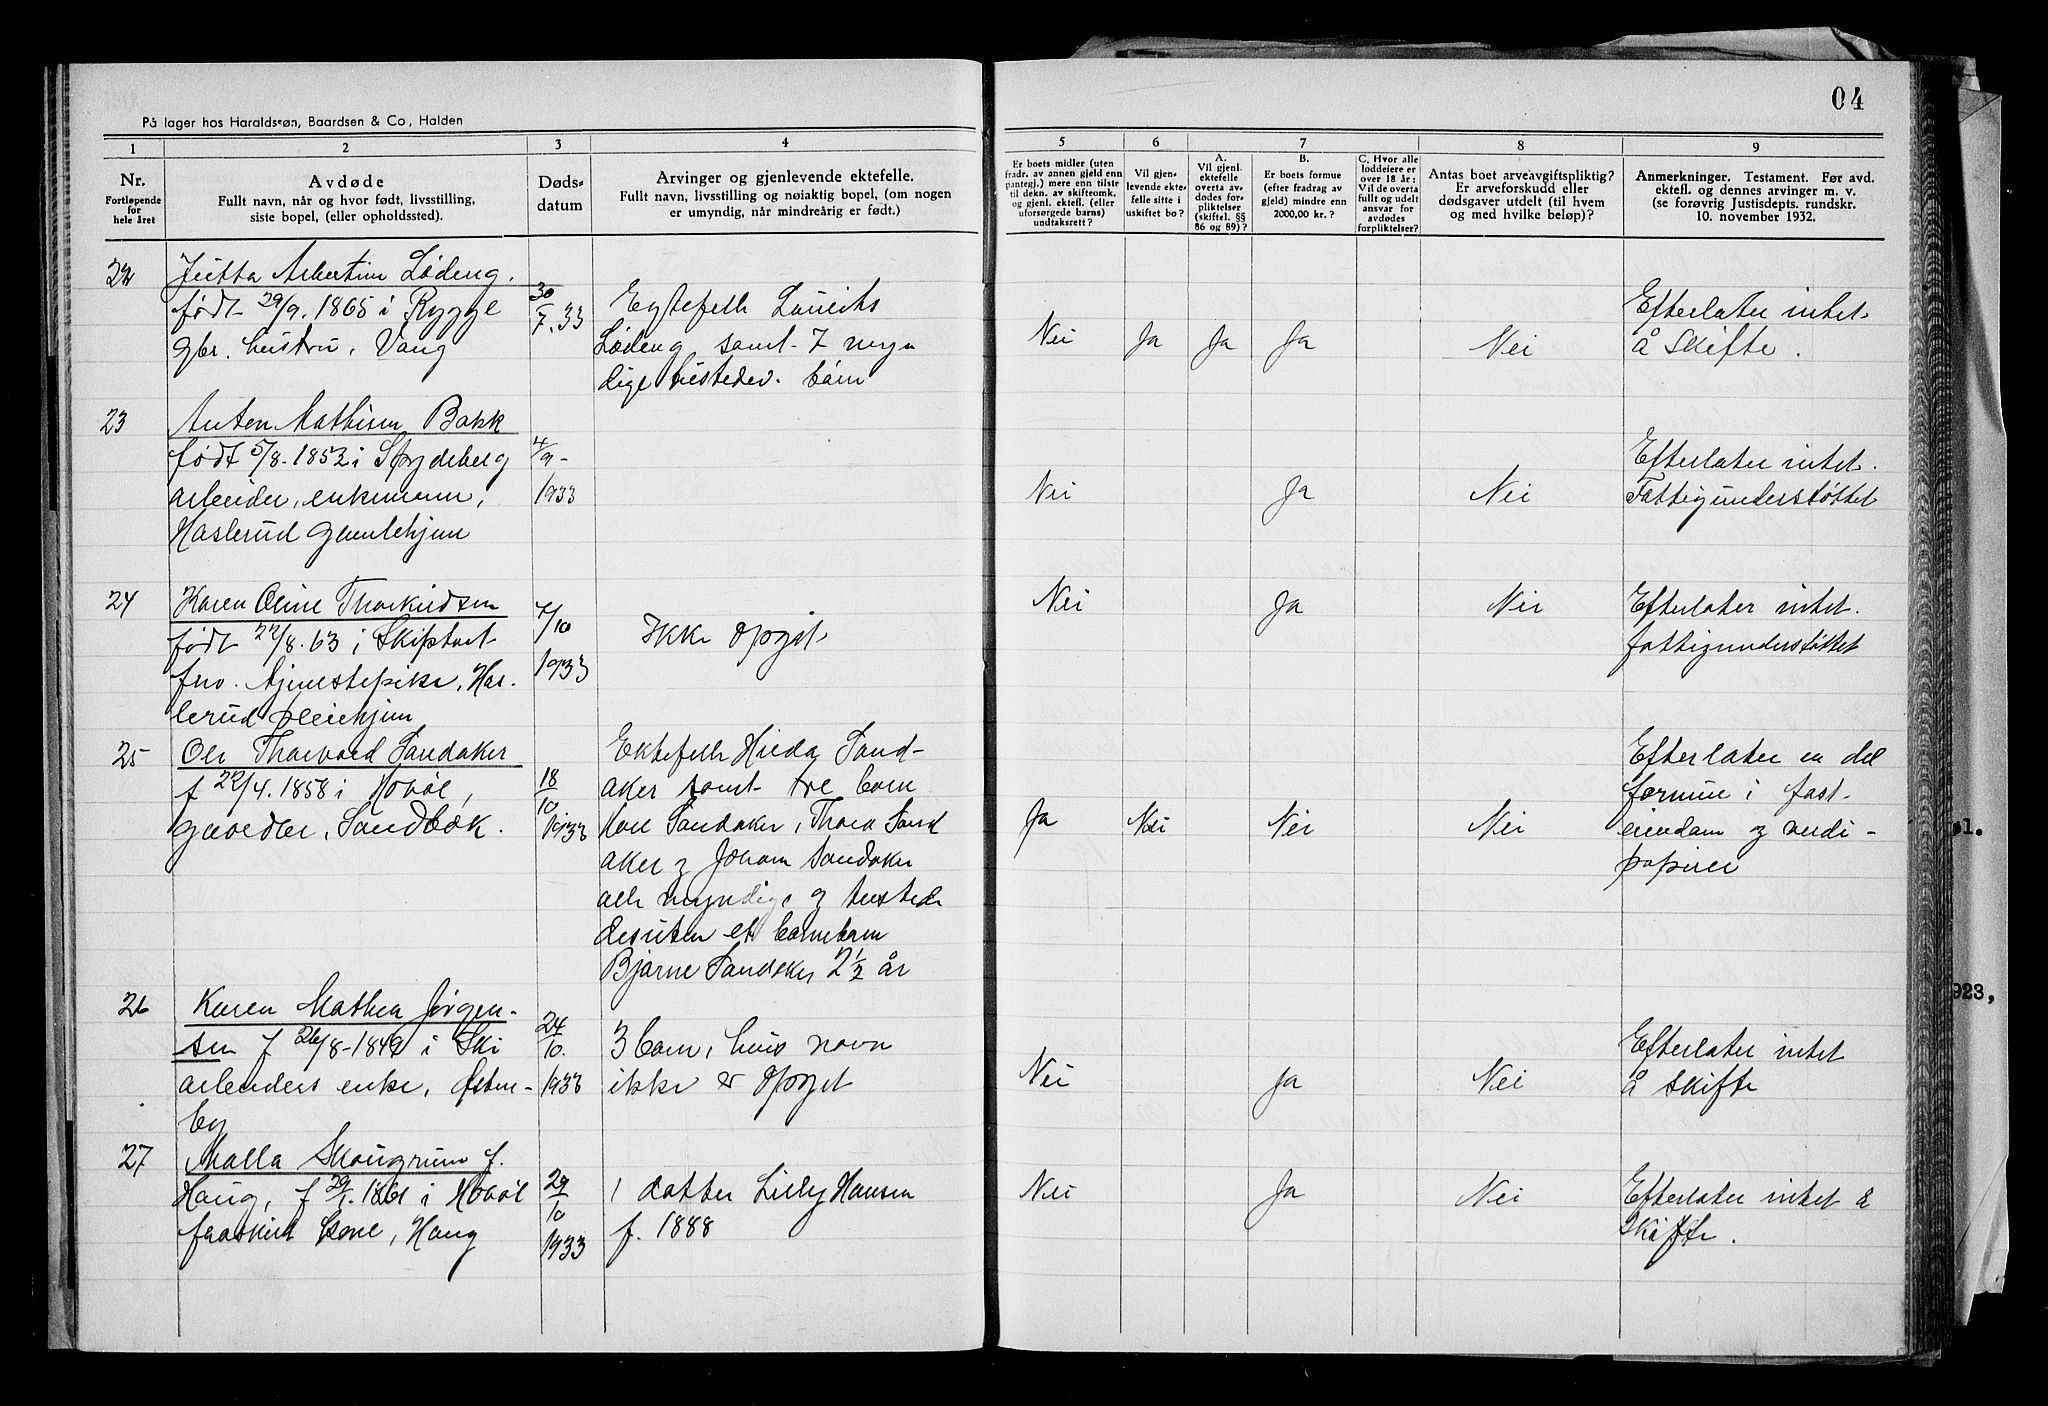 04
På lager hos Haraldssøn, Baardsen & Co, Halden
1 2 3 4 5 6 7 8 9
Nr.
Fortløpende
for
hele året
Avdøde
Fullt navn, når og hvor født, livsstilling,
siste bopel, (eller opholdssted).
Døds-
datum
Arvinger og gjenlevende ektefelle.
Fullt navn, livsstilling og nøiaktig bopel, (om nogen
er umyndig, når mindreårig er født.)
Er boets midler (uten
fradr. av annen gjeld enn
pantegj.) mere enn tilstr
til dekn. av skifteomk.
og gjenl. ektefl. (eller
uforsørgede barns)
undtaksrett?
Vil gjen-
levende ekte-
felle sitte i
uskiftet bo?
A.
Vil gjenl.
ektefelle
overta av-
dødes for-
pliktelser
(skiftel. §§
86 og 89)?
B.
Er boets formue
(efter fradrag av
gjeld) mindre enn
2000,00 kr. ?
C. Hvor alle
loddeiere er
over 18 år:
Vil de overta
fullt og udelt
ansvar for
avdødes
forpliktelser?
Antas boet arveavgiftspliktig?
Er arveforskudd eller
dødsgaver utdelt (til hvem
og med hvilke beløp)?
Anmerkninger. Testament. Før avd.
ektefl. og dennes arvinger m. v.
(se forøvrig Justisdepts. rundskr.
10. november 1932.
22
Jutta Albertine Lødeng.
født 29/9. 1865 i Rygge
gbr. hustru, Vang
30/7. 33
Egtefelle Lauritz
Lødeng samt 7 myn
dige tilstedev. barn
Nei Ja Ja Ja Nei
Efterlater intet
å skifte.
23
Anton Mathisen Bakk
født 5/8. 1852 i Spydeberg
arbeider, enkemann,
Haslerud gamlehjem
4/9-
1933
Nei Ja Nei
Efterlater intet.
Fattigunderstøttet
24
Karen Oline Thorkildsen
født 22/8. 63 i Skiptvet
frv. tjenestepike, Has-
lerud pleiehjem
7/10
1933
Ikke opgit
Nei Ja Nei
Efterlater intet.
fattigunderstøttet
25
Ole Thorvald Sandaker
f 22/4. 1858 i Hobøl,
gaardbr, Sandbæk.
18/10
1933
Ektefelle Hilda Sand-
aker samt tre barn
Karl Sandaker, Thora Sand
aker og Johan Sandaker
alle myndige og tilstede
desuten et barnebarn
Bjarne Sandaker 2½ år
Ja Nei Nei Nei
Efterlater en del
formue i fast-
eiendom og verdi-
papirer
26
Karen Mathea Jørgen-
sen f 26/8-1849 i Ski
arbeiders enke, Østen-
by
24/10.
1933
3 barn, hvis navn
ikke er opgit
Nei Ja Nei
Efterlater intet
å skifte
27
Malla Skaugrum f.
Haug, f 29/1. 1861 i Hobøl
fraskilt kone, Haug
29/10
1933
1 datter Lilly Hansen
f. 1888
Nei Ja Nei
Efterlater intet å
skifte.
øl.
923,